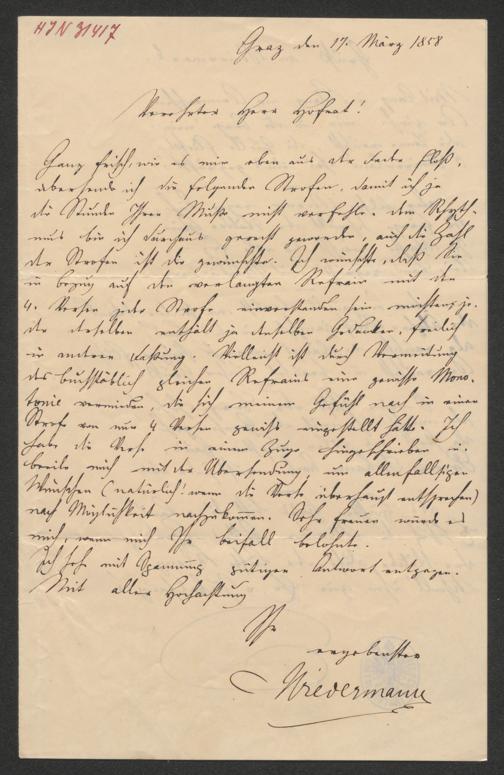 HIN 31417
Graz den 17. März 1858
Verehrter Herr Hofrat!
Ganz frisch, wie es mir eben aus der Feder floß,
übersende ich die folgenden Strofen, damit ich ja
die Stunde Ihrer Muße nicht verfehle. Dem Rhyth-
mus bin ich durchaus gerecht geworden, auch die Zahl
der Strofen ist die gewünschte. Ich wünschte, daß Sie
in bezug auf den verlangten Refrain mit den
4. Versen jeder Strofe einverstanden sein möchten; je-
der derselben enthält ja denselben Gedanken, freilich
in anderer Fassung. Vielleicht ist durch Vermeidung
des buchstäblich gleichen Refrains eine gewisse Mono-
tonie vermieden, die sich meinem Gefühl nach in einer
Strofe von nur 4 Versen gewiß eingestellt hätte. Ich
habe die Verse in einem Zuge hingeschrieben u.
beeile mich mit der Übersendung, um allenfallsigen
Wünschen (natürlich! wenn die Verse überhaupt entsprechen)
nach Möglichkeit nachzukommen. Sehr freuen würde es
mich, wenn mich Ihr Beifall belohnte.
Ich sehe mit Spannung gütiger Antwort entgegen.
Mit aller Hochachtung
Ihr
ergebenster
Wiedermann